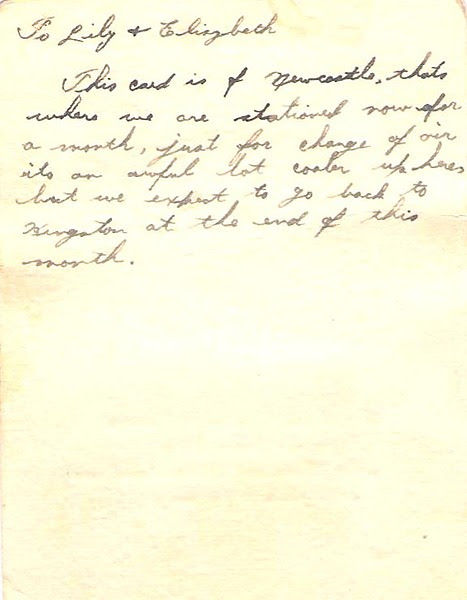 To Lily + Elizabeth
This card is of Newcastle, thats
where we are stationed now for
a month, just for change of air
its an awful lot cooler up here
but we expest to go back to
Kingston at the end of this
month.